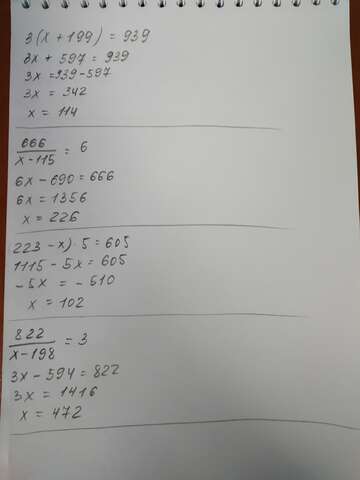 3(x + 199) = 939
3x + 597 = 939
3x = 939 - 597
3x = 342
x = 114
666
x - 115 = 6
6x - 690 = 666
6x = 1356
x = 226
223 - x) · 5 = 605
1115 - 5x = 605
-5x = -510
x = 102
822
x - 198 = 3
3x - 594 = 822
3x = 1416
x = 472